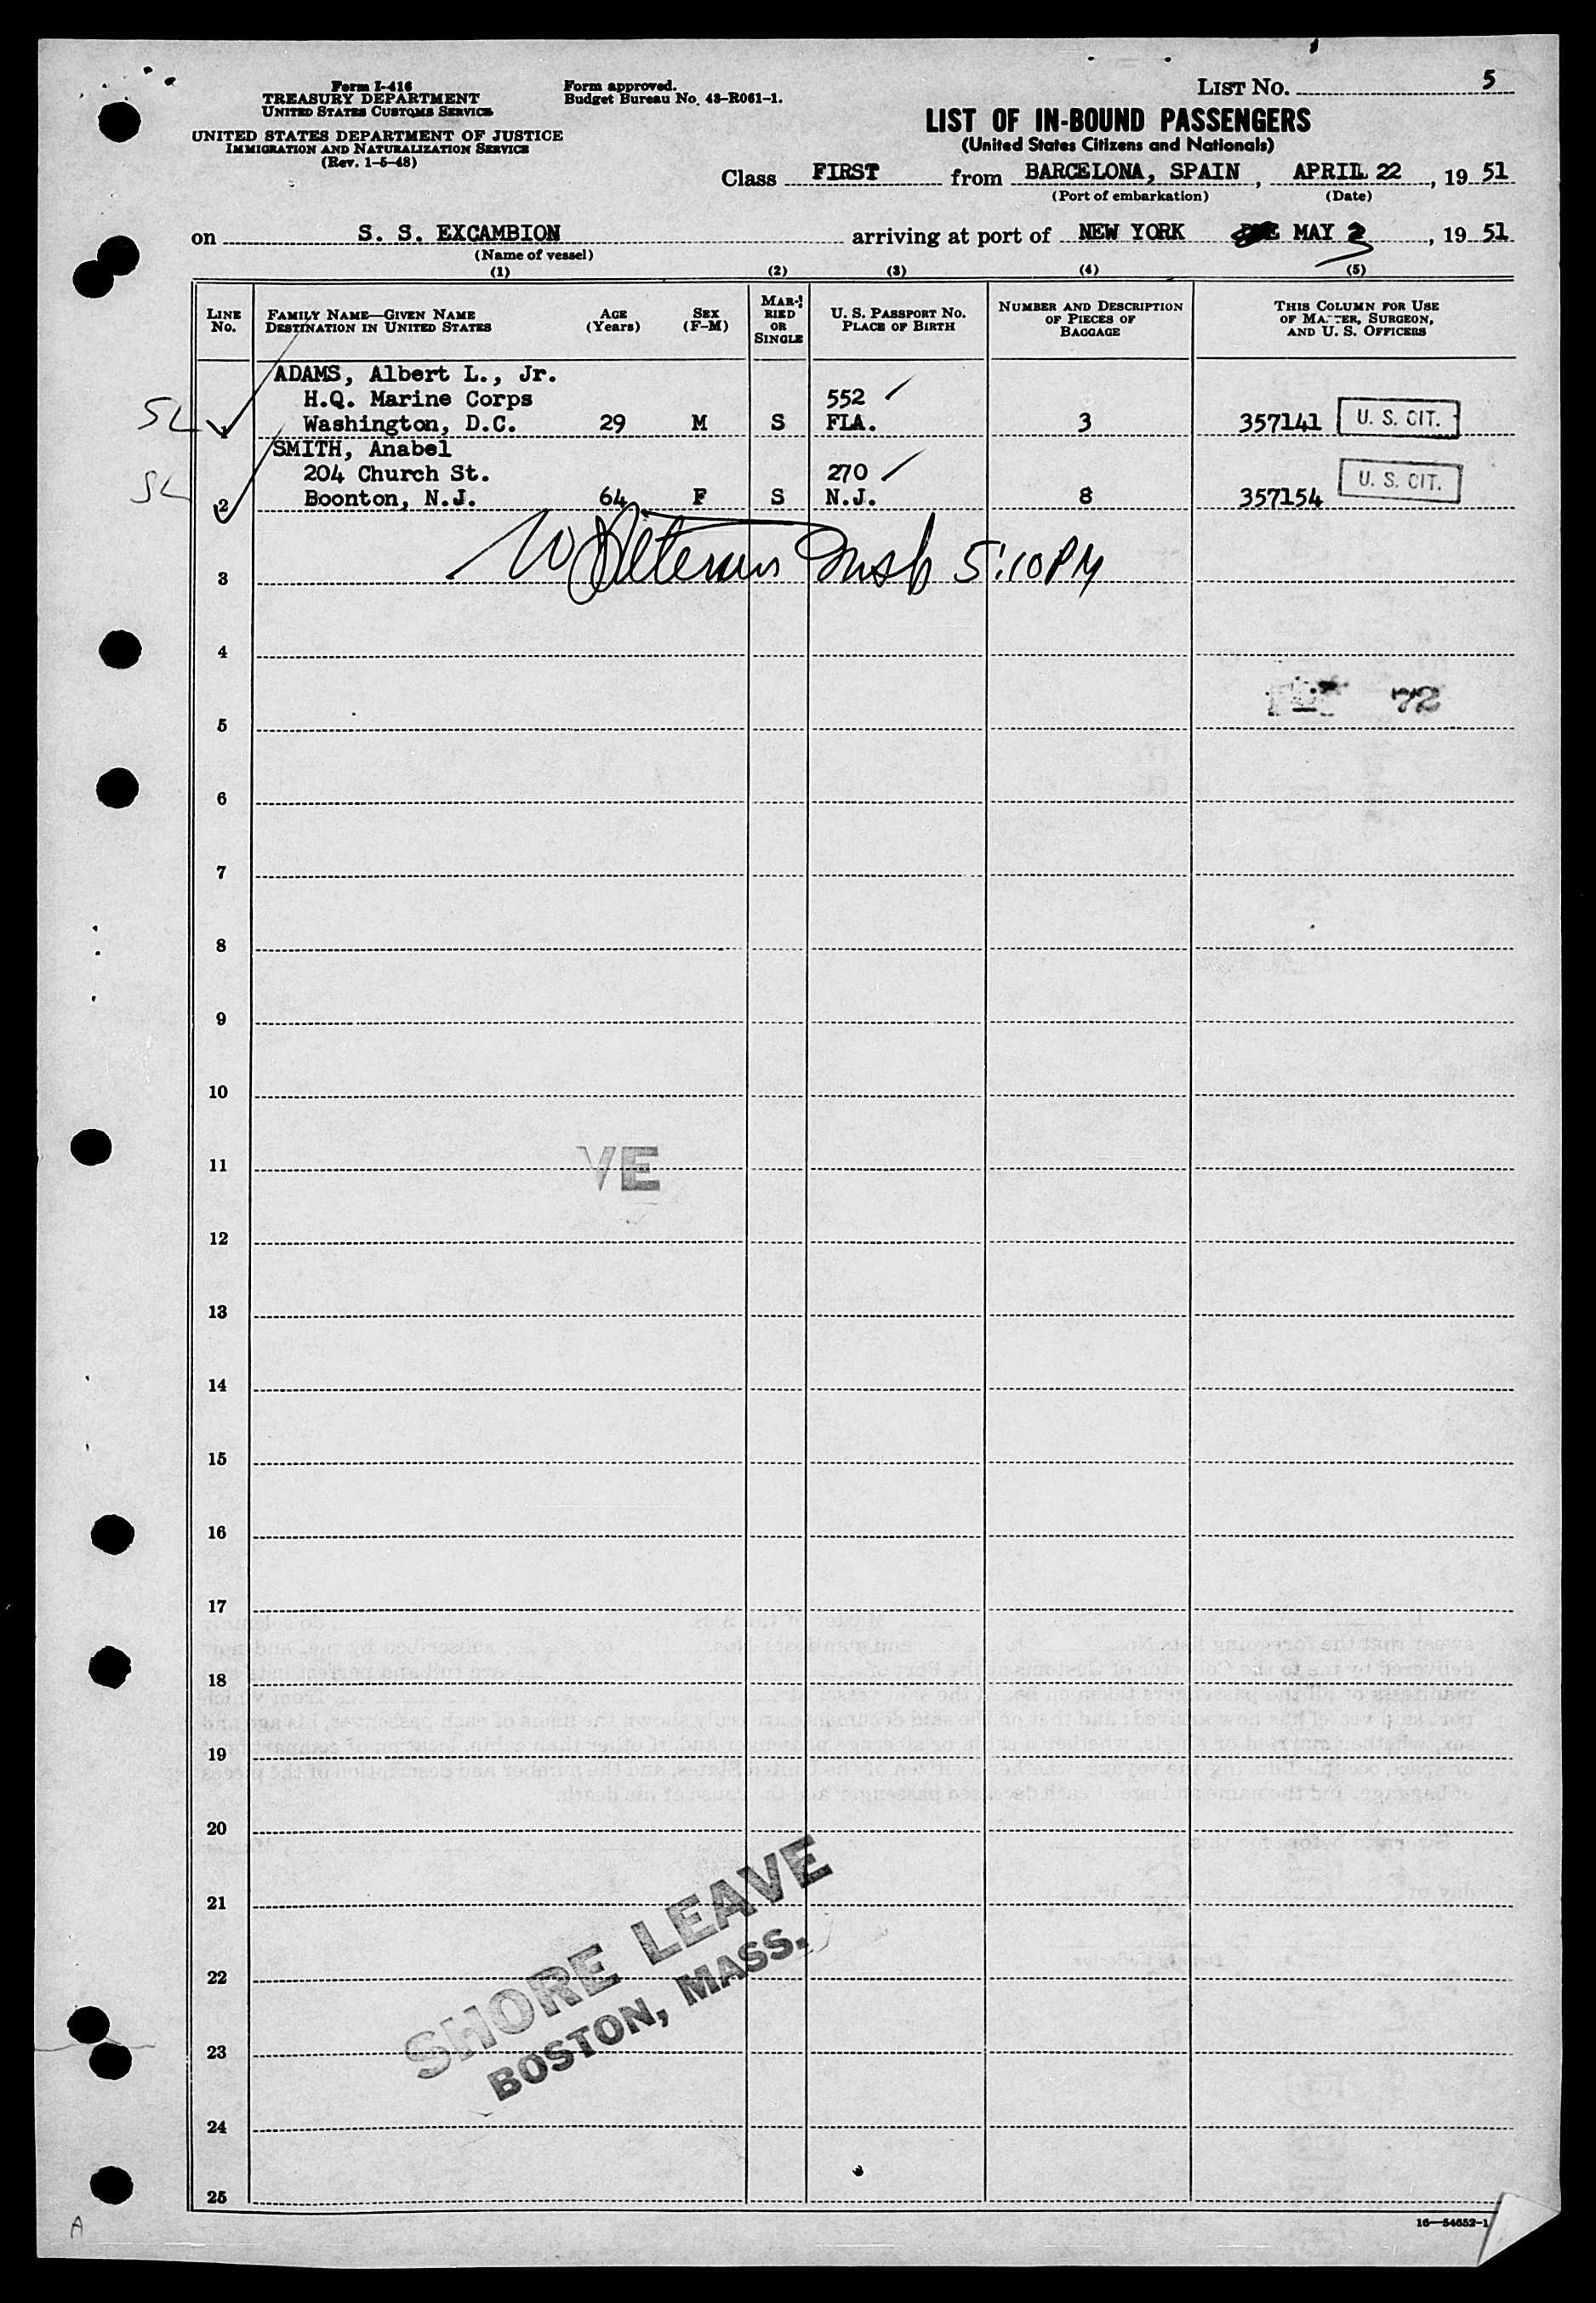 Form I-416
TREASURY DEPARTMENT
UNITED STATES CUSTOMS SERVICE
UNITED STATES DEPARTMENT OF JUSTICE
IMMIGRATION AND NATURALIZATION SERVICE
(Rev. 1-5-48)
Form approved.
Budget Bureau No. 43-R061-1.
LIST No. 5
LIST OF IN-BOUND PASSENGERS
(United States Citizens and Nationals)
Class FIRST from BARCELONA, SPAIN, APRIL 22, 19 51
(Port of embarkation) (Date)
on S. S. EXCAMBION arriving at port of NEW YORK MAY 3, 19 51
(Name of vessel)
(1) (2) (3) (4) (5)
LINE No.
FAMILY NAME—GIVEN NAME
DESTINATION IN UNITED STATES
AGE (Years)
SEX (F-M)
MARRIED OR SINGLE
U. S. PASSPORT NO.
PLACE OF BIRTH
NUMBER AND DESCRIPTION OF PIECES OF BAGGAGE
THIS COLUMN FOR USE OF MASTER, SURGEON, AND U. S. OFFICERS
ADAMS, Albert L., Jr.
H.Q. Marine Corps 552
SL 1 Washington, D.C. 29 M S FLA. 3 357141 U. S. CIT.
SMITH, Anabel
204 Church St. 270
SL 2 Boonton, N.J. 64 F S N.J. 8 357154 U. S. CIT.
3 Insp 5:10 PM
4
72
5
6
7
8
9
10
11 VE
12
13
14
15
16
17
18
19
20
21
22
23
24
25
SHORE LEAVE
BOSTON, MASS.
A
16—54652-1